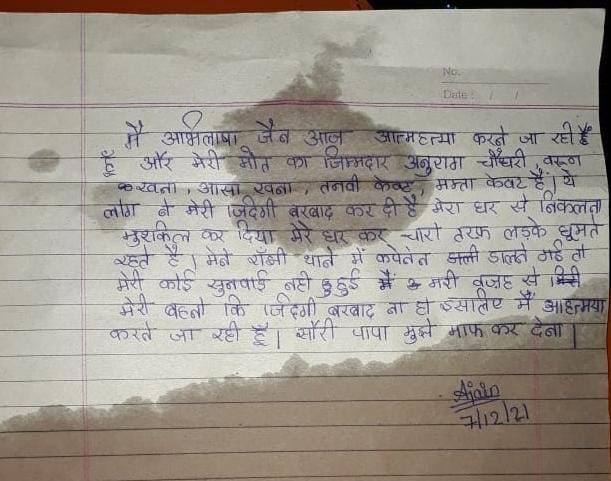 No.
Date : / /
मै अभिलाषा जैन आज आत्महत्या करने जा रही हैं
हूँ और मेरी मौत का जिम्मदार अनुराग चौधरी, वरून
रखना, आसा रखना, तनवी केवट, ममता केवट हैं, ये
लोग ने मेरी जिंदगी बरबाद कर दी है मेरा घर से निकलना
मुशकिल कर दिया मेरे घर कर चारो तरफ लड़के घूमते
रहते है। मेने थाने में डालने गई तो
मेरी कोई सुनवाई नही हुई मैं मेरी वजह से
मेरी बहनो कि जिंदगी बरबाद ना हो इसलिए मैं आहत्मया
करने जा रही हूँ। सॉरी पापा मुझे माफ कर देना।
Ajain
7/12/21